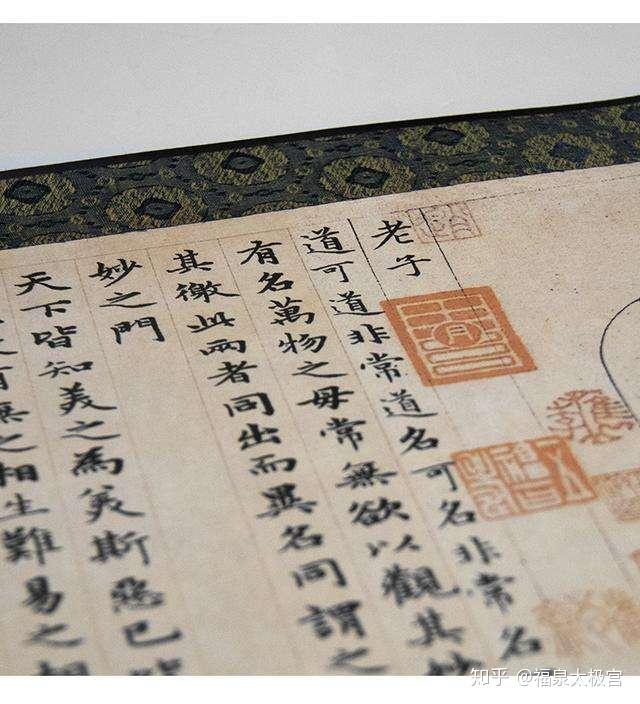 老子
道可道非常道名可名非常名
有名萬物之母常無欲以觀其妙
其徼此兩者同出而異名同謂之
妙之門
天下皆知美之為美斯惡已皆
有無之相生難易之相
知乎 @福泉太极宫